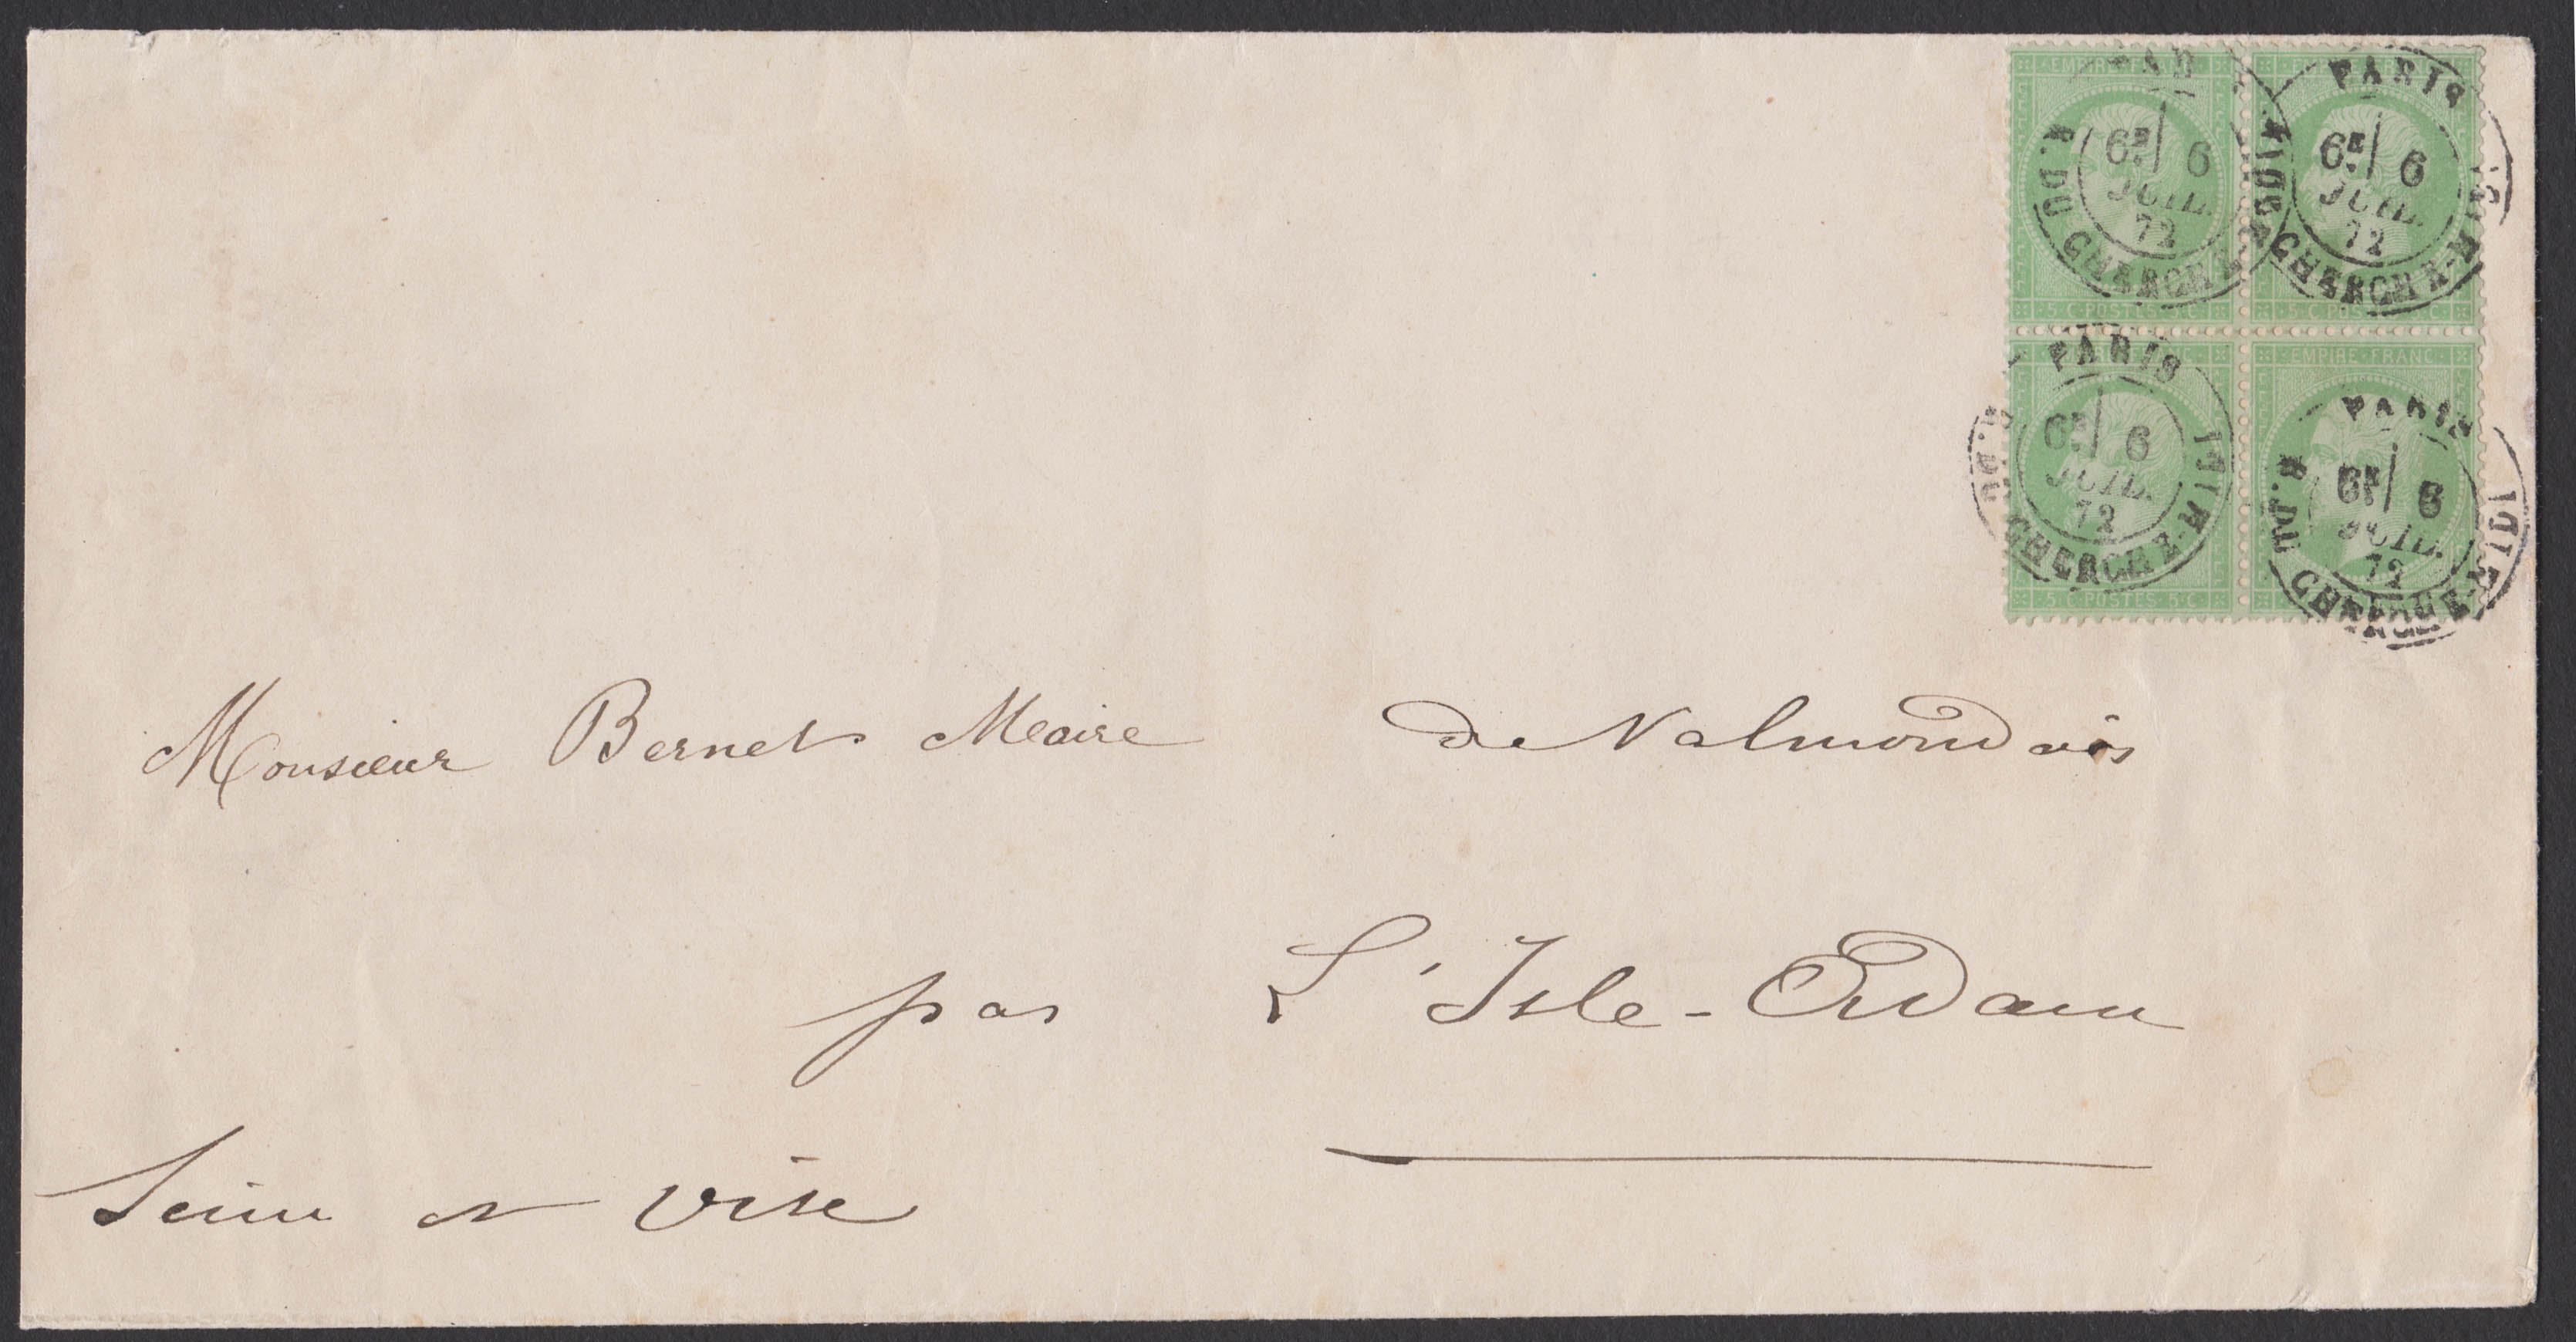 EMPIRE FRANC
5 C POSTES 5 C
PARIS
6E 6
JUIL.
72
R. DU CHERCHE-MIDI
PARIS
6E 6
JUIL.
72
CHERCHE-MIDI
5 C POSTES 5 C
PARIS
6E 6
JUIL.
72
R. DU CHERCHE-MIDI
5 C POSTES 5 C
EMPIRE FRANC
PARIS
6E 6
JUIL.
72
R. DU CHERCHE-MIDI
Monsieur Bernet Maire de Valmondois
par L'Isle-Adam
Seine et Oise